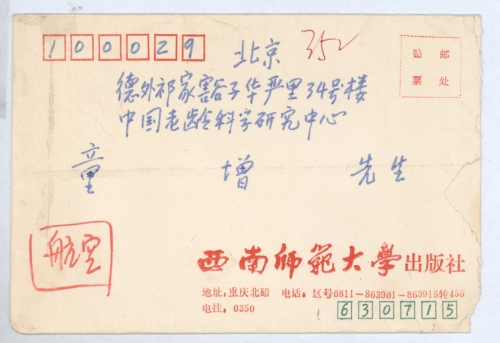 100029
北京
352
贴 邮
票 处
德外祁家豁子华严里34号楼
中国老龄科学研究中心
童 增 先生
航空
西南师范大学出版社
地址:重庆北碚 电话:区号0811-863901-863915转455
电挂:0350
630715